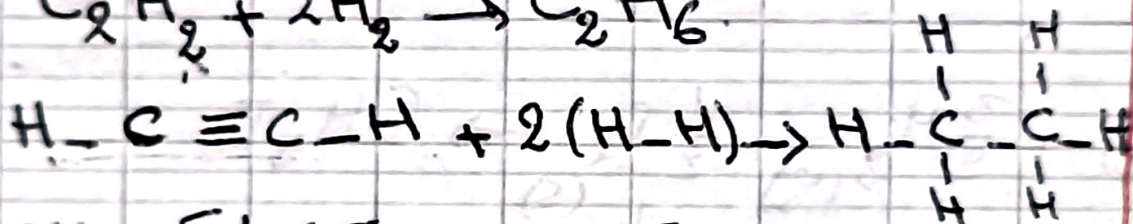 C₂H₂ + 2H₂ → C₂H₆
H H
H – C ≡ C – H + 2(H–H) → H – C – C – H
H H